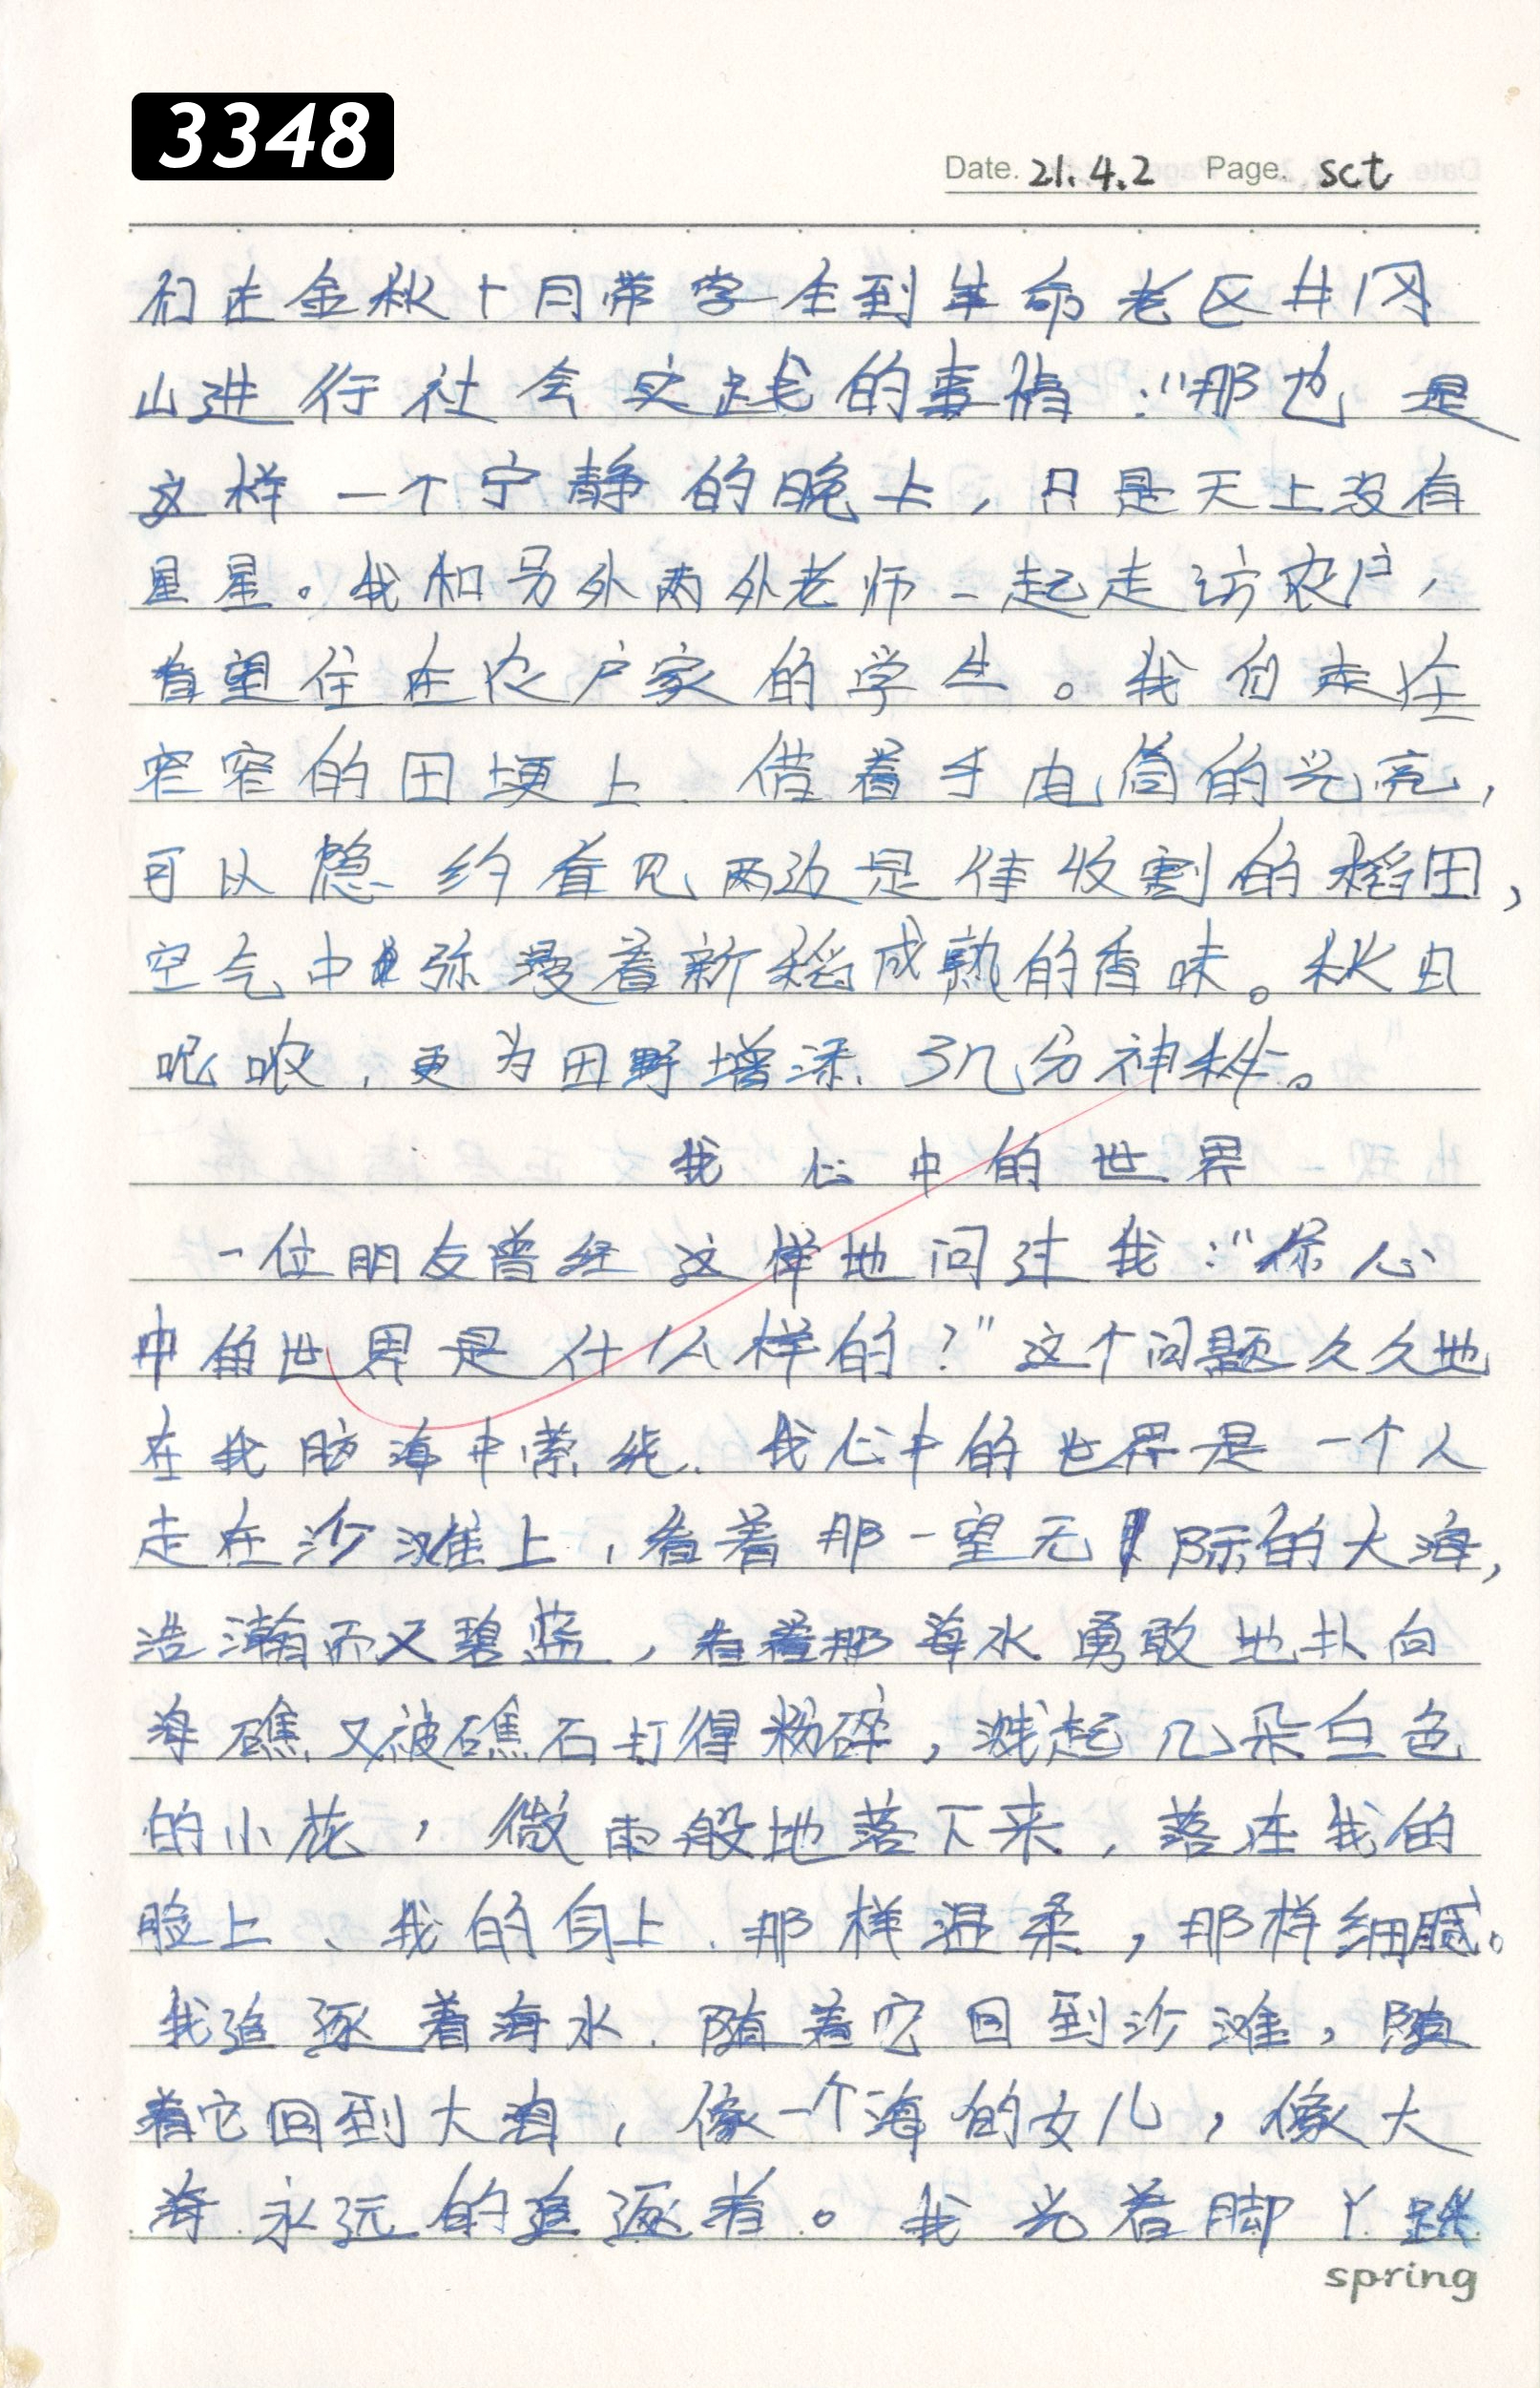 3348
Date. 21.4.2 Page. sct
们在金秋十月带学生到革命老区井冈
山进行社会实践的事情:"那也是
这样一个宁静的晚上,只是天上没有
星星。我和另外两外老师一起走访农户,
看望住在农户家的学生。我们走在
窄窄的田埂上.借着手电筒的光亮,
可以隐约看见两边是待收割的稻田,
空气中弥漫着新稻成熟的香味。秋虫
呢哝,更为田野增添了几分神秘。
我心中的世界
一位朋友曾经这样地问过我:"你心
中的世界是什么样的?"这个问题久久地
在我脑海中萦绕.我心中的世界是一个人
走在沙滩上,看着那一望无际的大海,
浩瀚而又碧蓝,看着那海水勇敢地扑向
海礁又被礁石打得粉碎,溅起几朵白色
的小花,微雨般地落下来,落在我的
脸上、我的身上.那样温柔,那样细腻。
我追逐着海水.随着它回到沙滩,随
着它回到大海,像一个海的女儿,像大
海永远的追逐着。我光着脚丫跳
spring